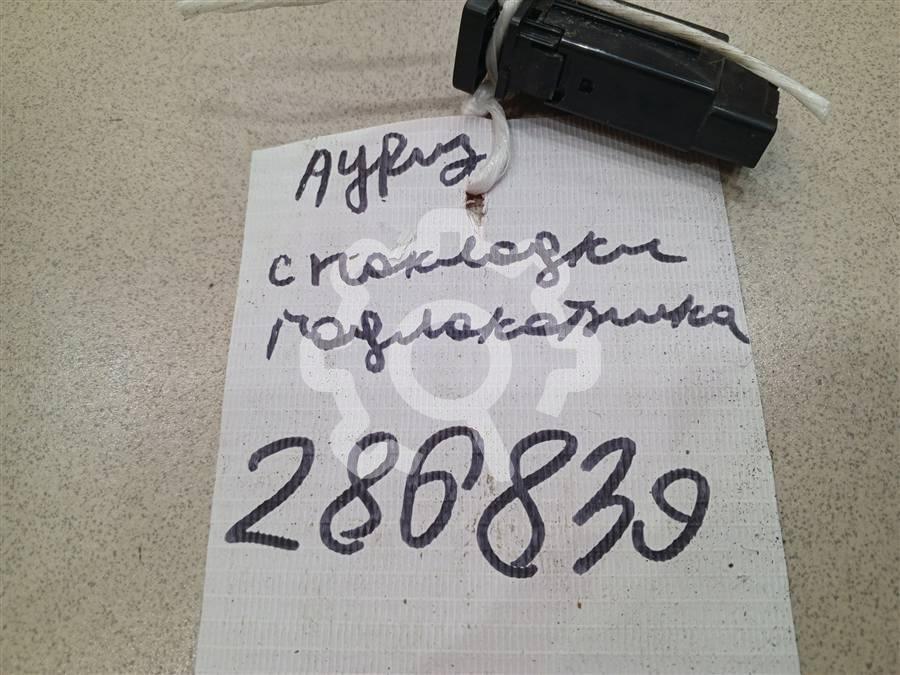 АУРИЗ
с накладки
подлокатника
286839